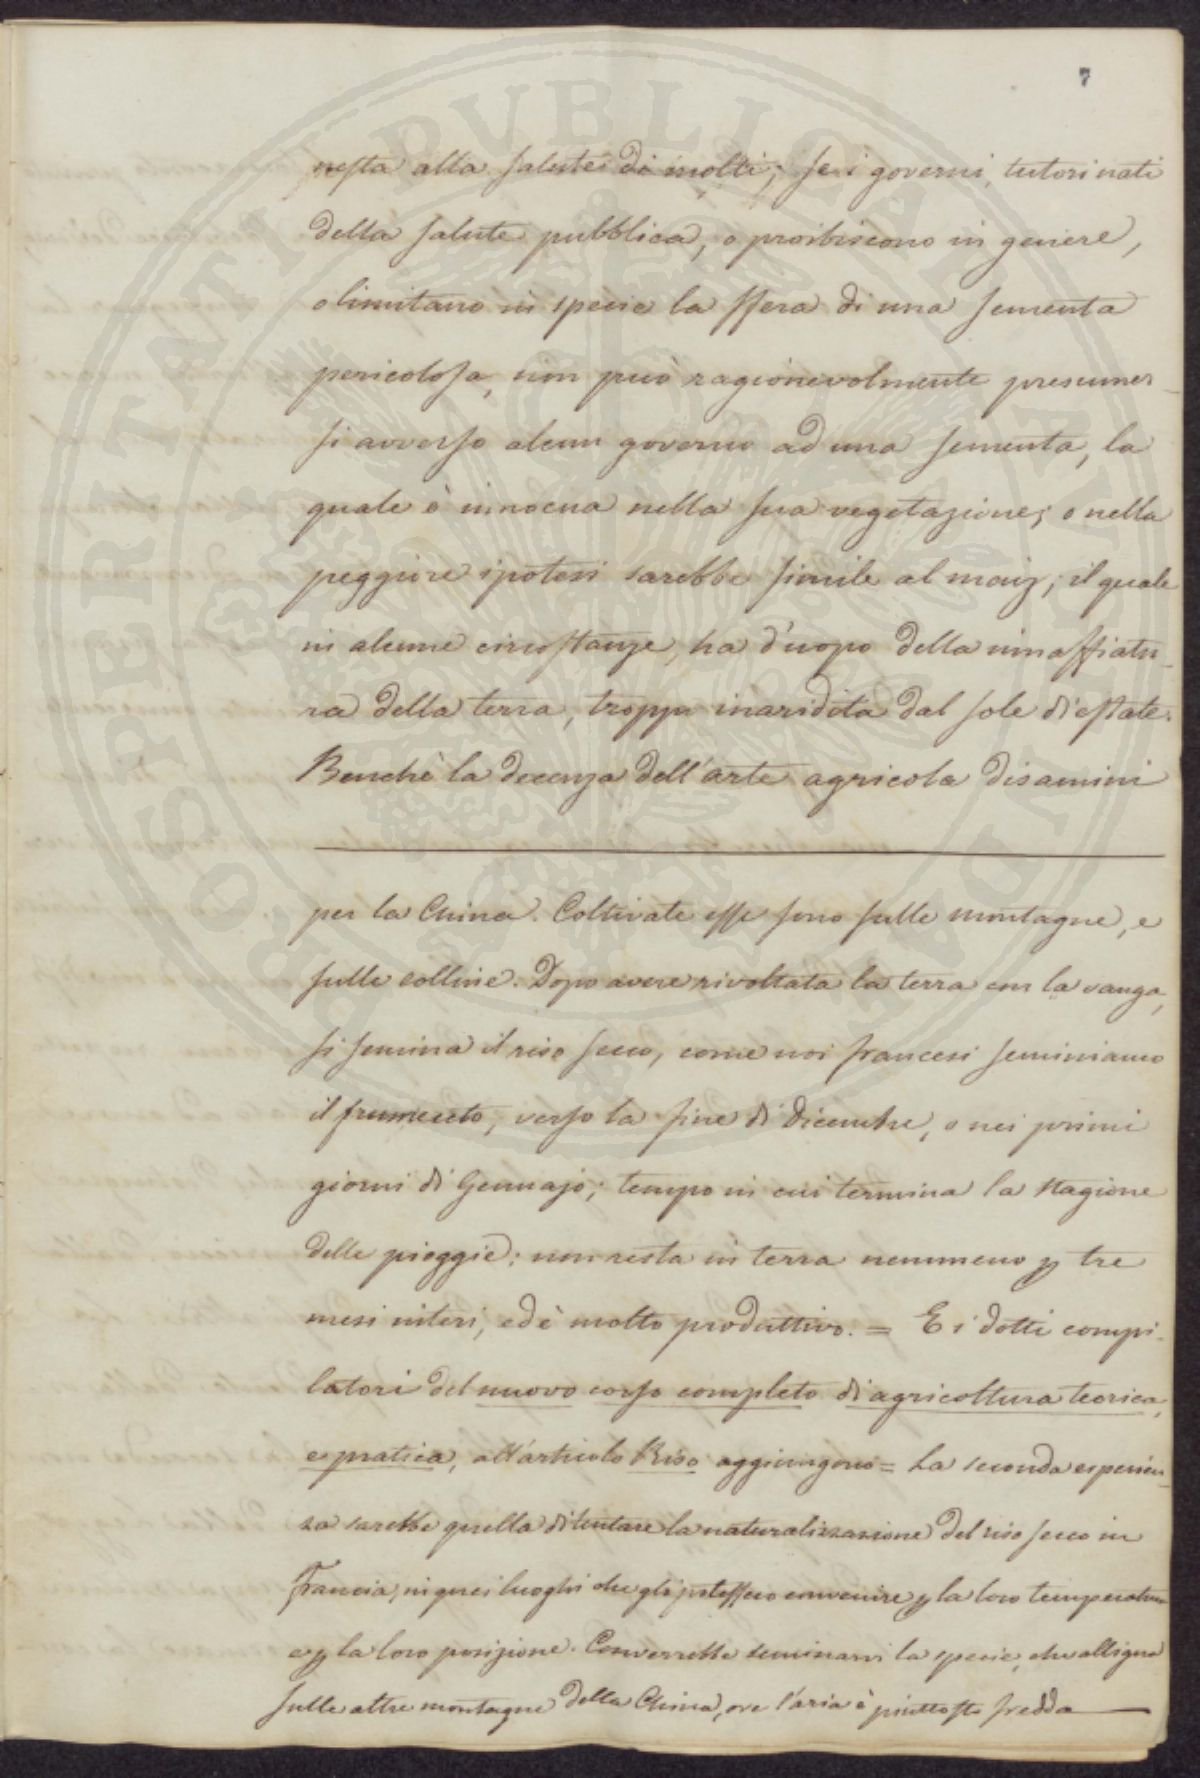 7
nesta alla salute di molti; se i governi, tutori nati
della salute pubblica, o proibiscono in genere,
o limitano in specie la sfera di una sementa
pericolosa, non può ragionevolmente presumer-
si avverso alcun governo ad una sementa, la
quale è innocua nella sua vegetazione; o nella
peggiore ipotesi sarebbe simile al maiz; il quale
in alcune circostanze, ha d'uopo della innaffiatu-
ra della terra, troppo inaridita dal sole di estate.
Benchè la decenza dell'arte agricola disamini
per la China. Coltivate esse sono sulle montagne, e
sulle colline. Dopo avere rivoltata la terra con la vanga,
si semina il riso secco, come noi francesi seminiamo
il frumento, verso la fine di Dicembre, o nei primi
giorni di Gennajo; tempo in cui termina la stagione
delle pioggie: non resta in terra nemmeno p tre
mesi interi, ed è molto produttivo. = E i dotti compi-
latori del nuovo corso completo di agricoltura teorica,
e pratica, all'articolo Riso aggiungono = La seconda esperien-
za sarebbe quella di tentare la naturalizzazione del riso secco in
Francia, in quei luoghi che gli potessero convenire p la loro temperatura
e p la loro posizione. Converrebbe seminarvi la specie, che alligna
sulle altre montagne della China, ove l'aria è piuttosto fredda
PROSPERITATI PUBLICAE